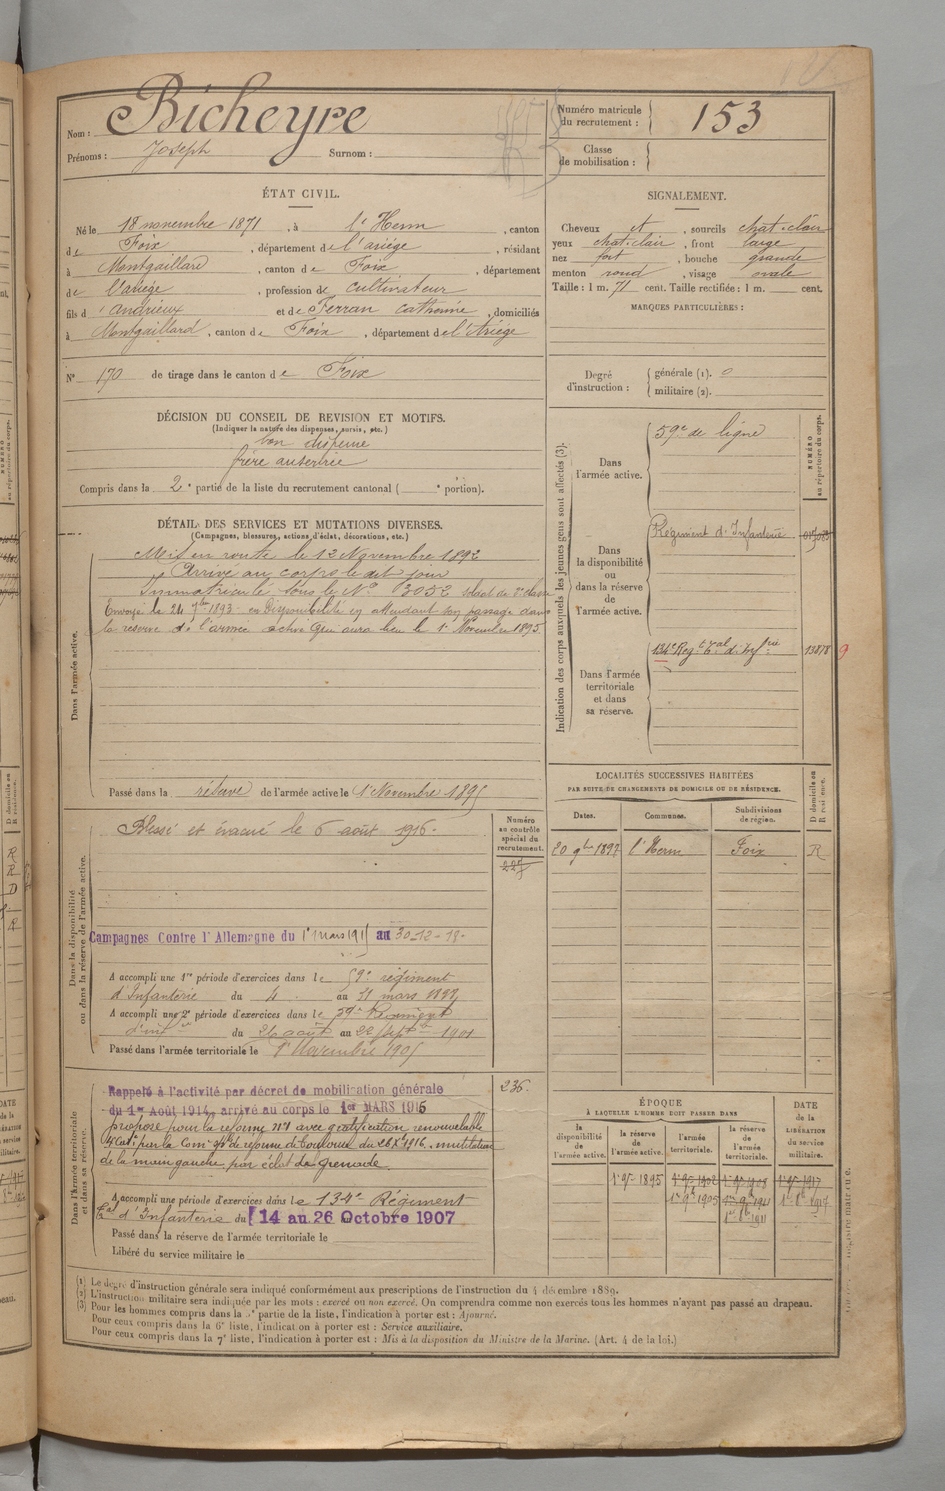 Nom : Bicheyre
Prénoms : Joseph Surnom :
Numéro matricule du recrutement : 153
Classe de mobilisation :
ÉTAT CIVIL.
Né le 18 novembre 1871, à l'Herm, canton
de Foix, département de l'ariège, résidant
à Montgaillard, canton de Foix, département
de l'ariège, profession de cultivateur
fils d'andrieux et de Ferran catherine, domiciliés
à Montgaillard, canton de Foix, département de l'Ariège
N° 170 de tirage dans le canton de Foix
SIGNALEMENT.
Cheveux et, sourcils chat. clair
yeux chat. clair, front large
nez fort, bouche grande
menton rond, visage ovale
Taille : 1 m. 71 cent. Taille rectifiée : 1 m. cent.
MARQUES PARTICULIÈRES :
Degré d'instruction : générale (1). 0
militaire (2).
DÉCISION DU CONSEIL DE REVISION ET MOTIFS.
(Indiquer la nature des dispenses, sursis, etc.)
bon dispensé
frère au service
Compris dans la 2e partie de la liste du recrutement cantonal ( e portion).
DÉTAIL DES SERVICES ET MUTATIONS DIVERSES.
(Campagnes, blessures, actions d'éclat, décorations, etc.)
Dans l'armée active.
Mis en route le 12 Novembre 1892
Arrivé au corps le dit jour
Immatriculé sous le N° 3052 soldat de 2e classe
Envoyé le 24 7bre 1893 en disponibilité en attendant son passage dans
la réserve de l'armée active qui aura lieu le 1er Novembre 1895
Passé dans la réserve de l'armée active le 1er Novembre 1895
Indication des corps auxquels les jeunes gens sont affectés (3).
NUMÉRO au répertoire du corps.
Dans l'armée active.
59e de ligne
Dans la disponibilité ou dans la réserve de l'armée active.
Régiment d'Infanterie
Dans l'armée territoriale et dans sa réserve.
134e Regt Tal d'Infrie 13878 9
LOCALITÉS SUCCESSIVES HABITÉES
PAR SUITE DE CHANGEMENTS DE DOMICILE OU DE RÉSIDENCE.
Dates. Communes. Subdivisions de région. D domicile ou R résidence.
20 9bre 1893 l'Herm Foix R
Dans la disponibilité ou dans la réserve de l'armée active.
Numéro au contrôle spécial du recrutement.
227
Blessé et évacué le 6 août 1916.
Campagnes Contre l'Allemagne du 1er mars 1915 au 30-12-18.
A accompli une 1re période d'exercices dans le 59e régiment
d'Infanterie du 4 au 31 mars 1899
A accompli une 2e période d'exercices dans le 59e Régiment
d'infie du 26 août au 22 septbre 1901
Passé dans l'armée territoriale le 1er Novembre 1905
Dans l'Armée territoriale et dans sa réserve.
236.
Rappelé à l'activité par décret de mobilisation générale
du 1er Août 1914, arrivé au corps le 1er MARS 1915
proposé pour la réforme n°1 avec gratification renouvelable
par la Comon Sple de réforme de Toulouse du 28 Xbre 1916. mutilation
de la main gauche par éclat de grenade
A accompli une période d'exercices dans le 134e Régiment
Tal d'Infanterie du 14 au 26 Octobre 1907
Passé dans la réserve de l'armée territoriale le
Libéré du service militaire le
ÉPOQUE
À LAQUELLE L'HOMME DOIT PASSER DANS
DATE de la LIBÉRATION du service militaire.
la disponibilité de l'armée active. la réserve de l'armée active. l'armée territoriale. la réserve de l'armée territoriale.
1er 9bre 1895 1er 9bre 1902 1er 9bre 1908 1er 9bre 1917
1er 9bre 1905 1er 9bre 1911 1er 8bre 1917
1er 8bre 1911
(1) Le degré d'instruction générale sera indiqué conformément aux prescriptions de l'instruction du 4 décembre 1889.
(2) L'instruction militaire sera indiquée par les mots : exercé ou non exercé. On comprendra comme non exercés tous les hommes n'ayant pas passé au drapeau.
(3) Pour les hommes compris dans la 5e partie de la liste, l'indication à porter est : Ajourné.
Pour ceux compris dans la 6e liste, l'indication à porter est : Service auxiliaire.
Pour ceux compris dans la 7e liste, l'indication à porter est : Mis à la disposition du Ministre de la Marine. (Art. 4 de la loi.)